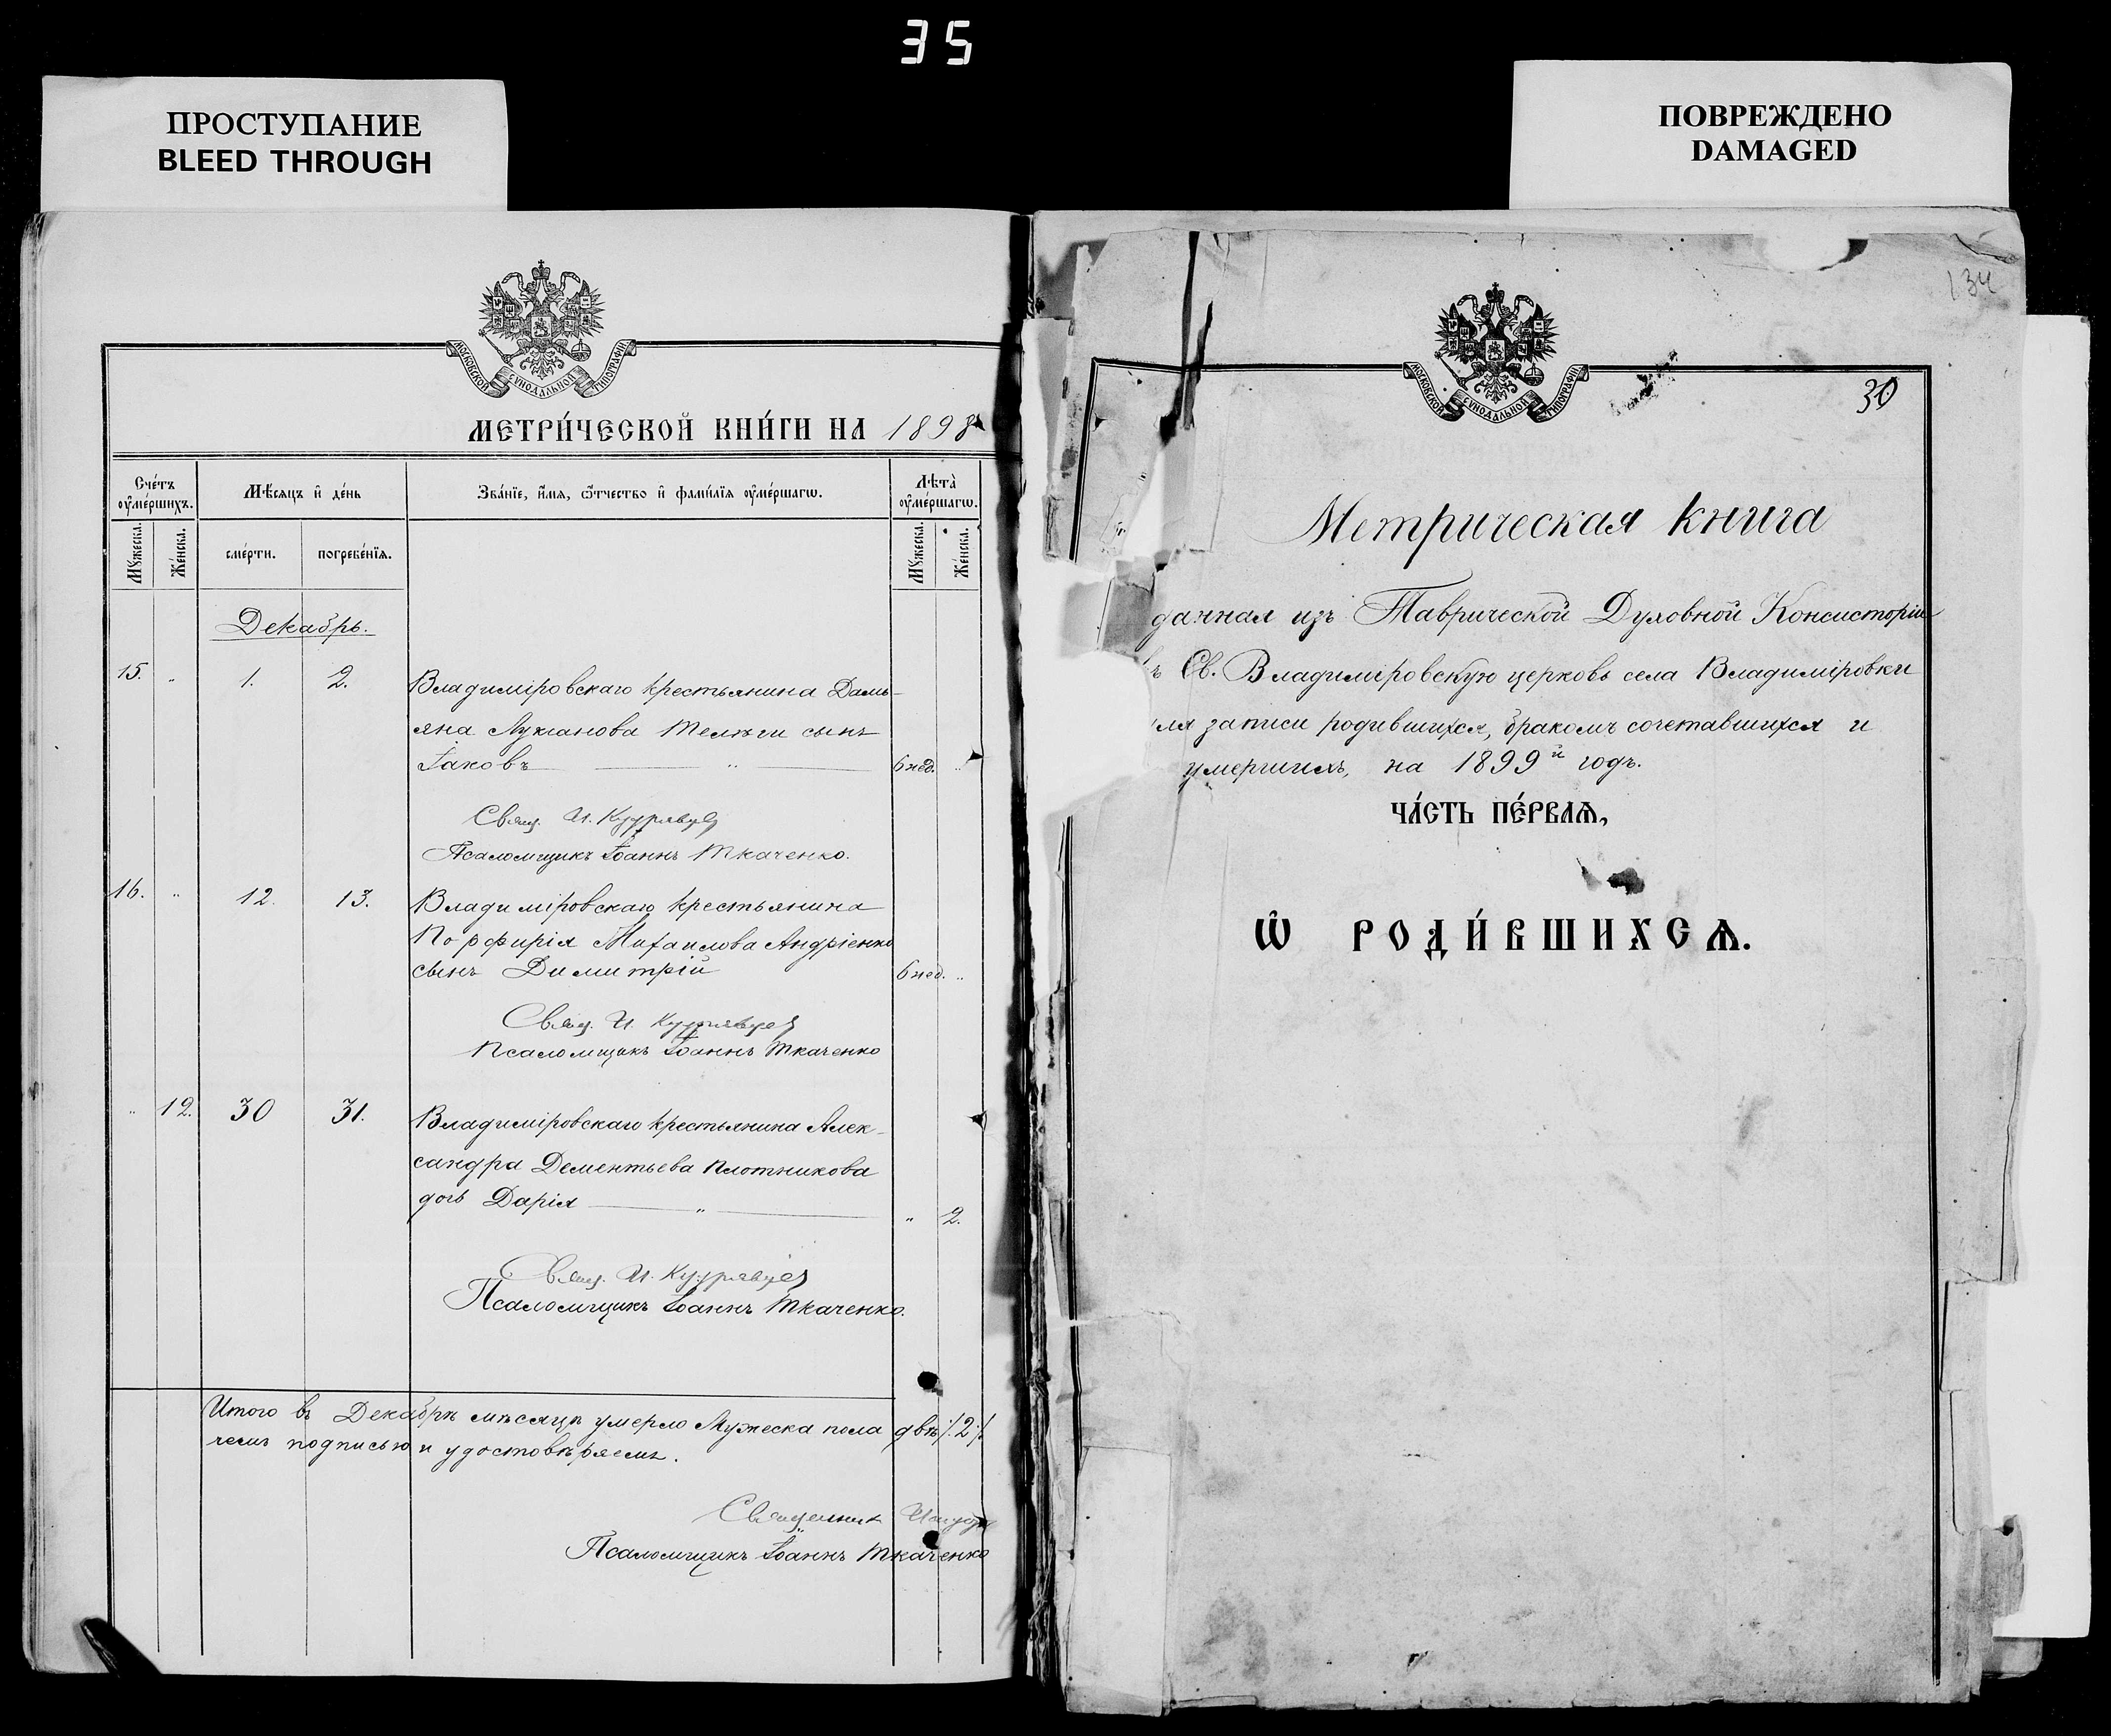 35
ПРОСТУПАНИЕ
BLEED THROUGH
ПОВРЕЖДЕНО
DAMAGED
МОСКОВСКОЙ СУНОДАЛЬНОЙ ТИПОГРАФІИ
МЕТРИ́ЧЕСКОЙ КНИ́ГИ НА 1898
Сче́тъ оу҆ме́ршихъ.
Мѣ́сяцъ и҆ де́нь
Зва́нїе, и҆́мя, ѻ҆́тчество и҆ фами́лїя оу҆ме́ршагѡ.
Лѣта̀ оу҆ме́ршагѡ.
Мꙋ́жеска.
Же́нска.
сме́рти.
погребе́нїѧ.
Мꙋ́жеска.
Же́нска.
Декабрь.
15. „ 1. 2. Владиміровскаго крестьянина Дамь-
яна Лукіанова Телѣги сынъ
Іаковъ — „ — 6 нед. „
Свящ. И. Кудрявцев
Псаломщикъ Іоаннъ Ткаченко.
16. „ 12. 13. Владиміровскаго крестьянина
Порфирія Михаилова Андріенко
сынъ Димитрій 6 нед. „
Свящ. И. Кудрявцев
Псаломщикъ Іоаннъ Ткаченко
„ 12. 30 31. Владиміровскаго крестьянина Алек-
сандра Дементьева Плотникова
дочь Дарія — „ — „ 2.
Свящ. И. Кудрявцев
Псаломщикъ Іоаннъ Ткаченко.
Итого въ Декабрѣ мѣсяцѣ умерло Мужеска пола двѣ /:2:/
чемъ подписью и удостовѣряемъ.
Священник
Псаломщикъ Іоаннъ Ткаченко
134
МОСКОВСКОЙ СУНОДАЛЬНОЙ ТИПОГРАФІИ
30
Метрическая книга
данная изъ Таврической Духовной Консисторіи
ъ Св. Владиміровскую церковь села Владиміровки
ля записи родившихся, бракомъ сочетавшихся и
умершихъ, на 1899й годъ.
ЧА́СТЬ ПЕ́РВАѦ,
Ѡ҆ РОДИ́ВШИХСѦ.